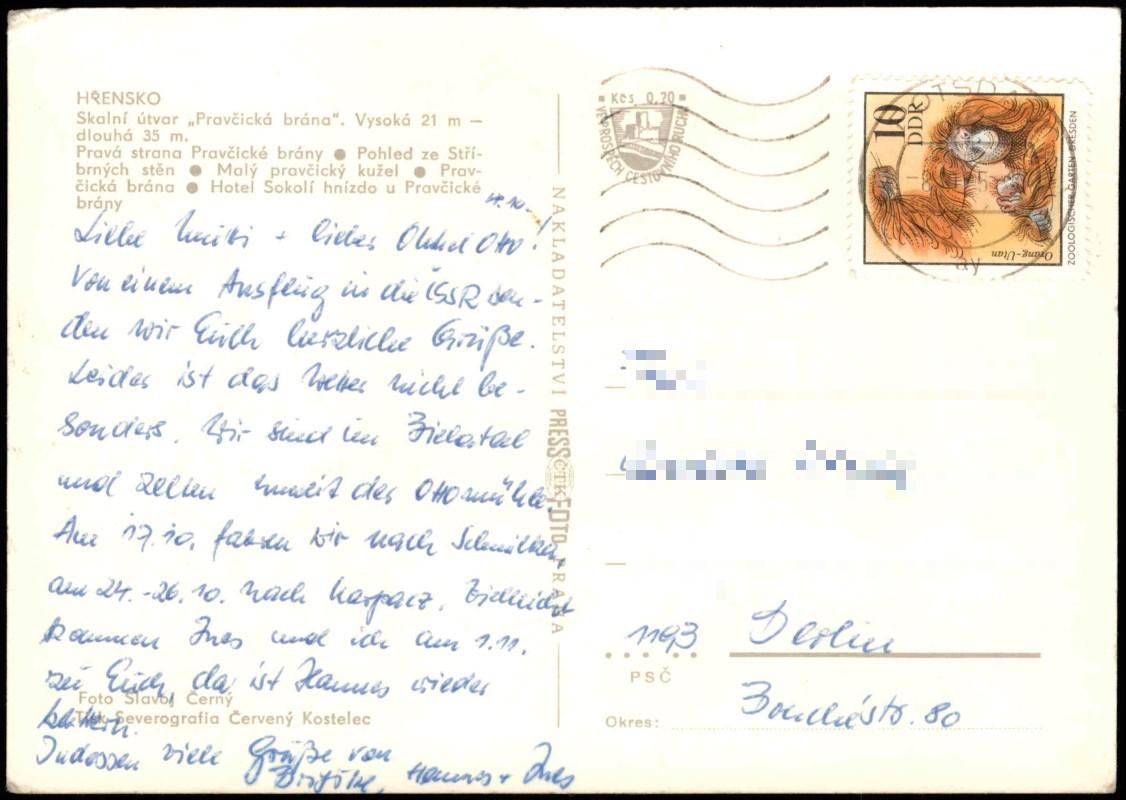 HŘENSKO
Skalní útvar „Pravčická brána“. Vysoká 21 m –
dlouhá 35 m.
Pravá strana Pravčické brány ● Pohled ze Stří-
brných stěn ● Malý pravčický kužel ● Prav-
čická brána ● Hotel Sokolí hnízdo u Pravčické
brány
14.10.
Liebe Mutti + lieber Onkel Otto!
Von einem Ausflug in die ČSSR sen-
den wir Euch herzliche Grüße.
Leider ist das Wetter nicht be-
sonders. Wir sind im Bielatal
und zelten unweit der Ottomühle.
Am 17.10. fahren wir nach Schmilka,
am 24.-26.10. nach Karpacz. Vielleicht
kommen Ines und ich am 1.11.
zu Euch, da ist Hannes wieder
Foto Slavoj Černý
Tisk Severografia Červený Kostelec
Indessen viele Grüße von
Brigitte, Hannes + Ines
NAKLADATELSTVÍ PRESSFOTO PRAHA
ČTK
Kčs 0,20
VE PROSPĚCH CESTOVNÍHO RUCHU
10
DDR
Orang-Utan
ZOOLOGISCHER GARTEN DRESDEN
1193 Berlin
PSČ
Bouchéstr. 80
Okres: